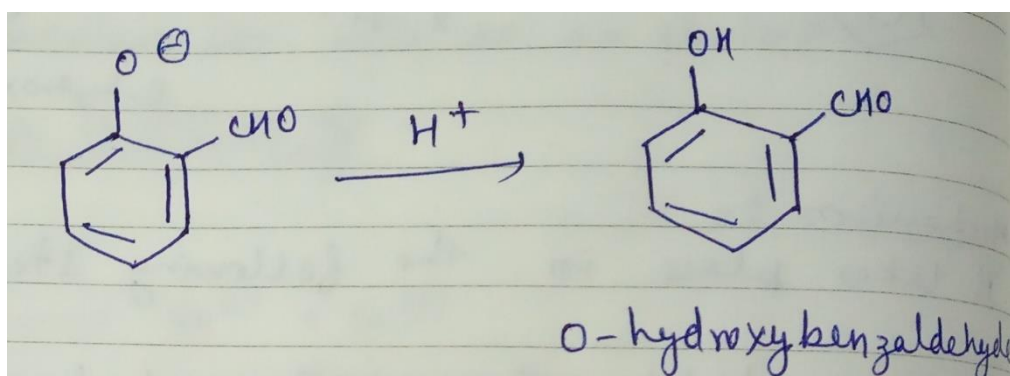 O ⊖
CHO
H+
OH
CHO
O-hydroxybenzaldehyde